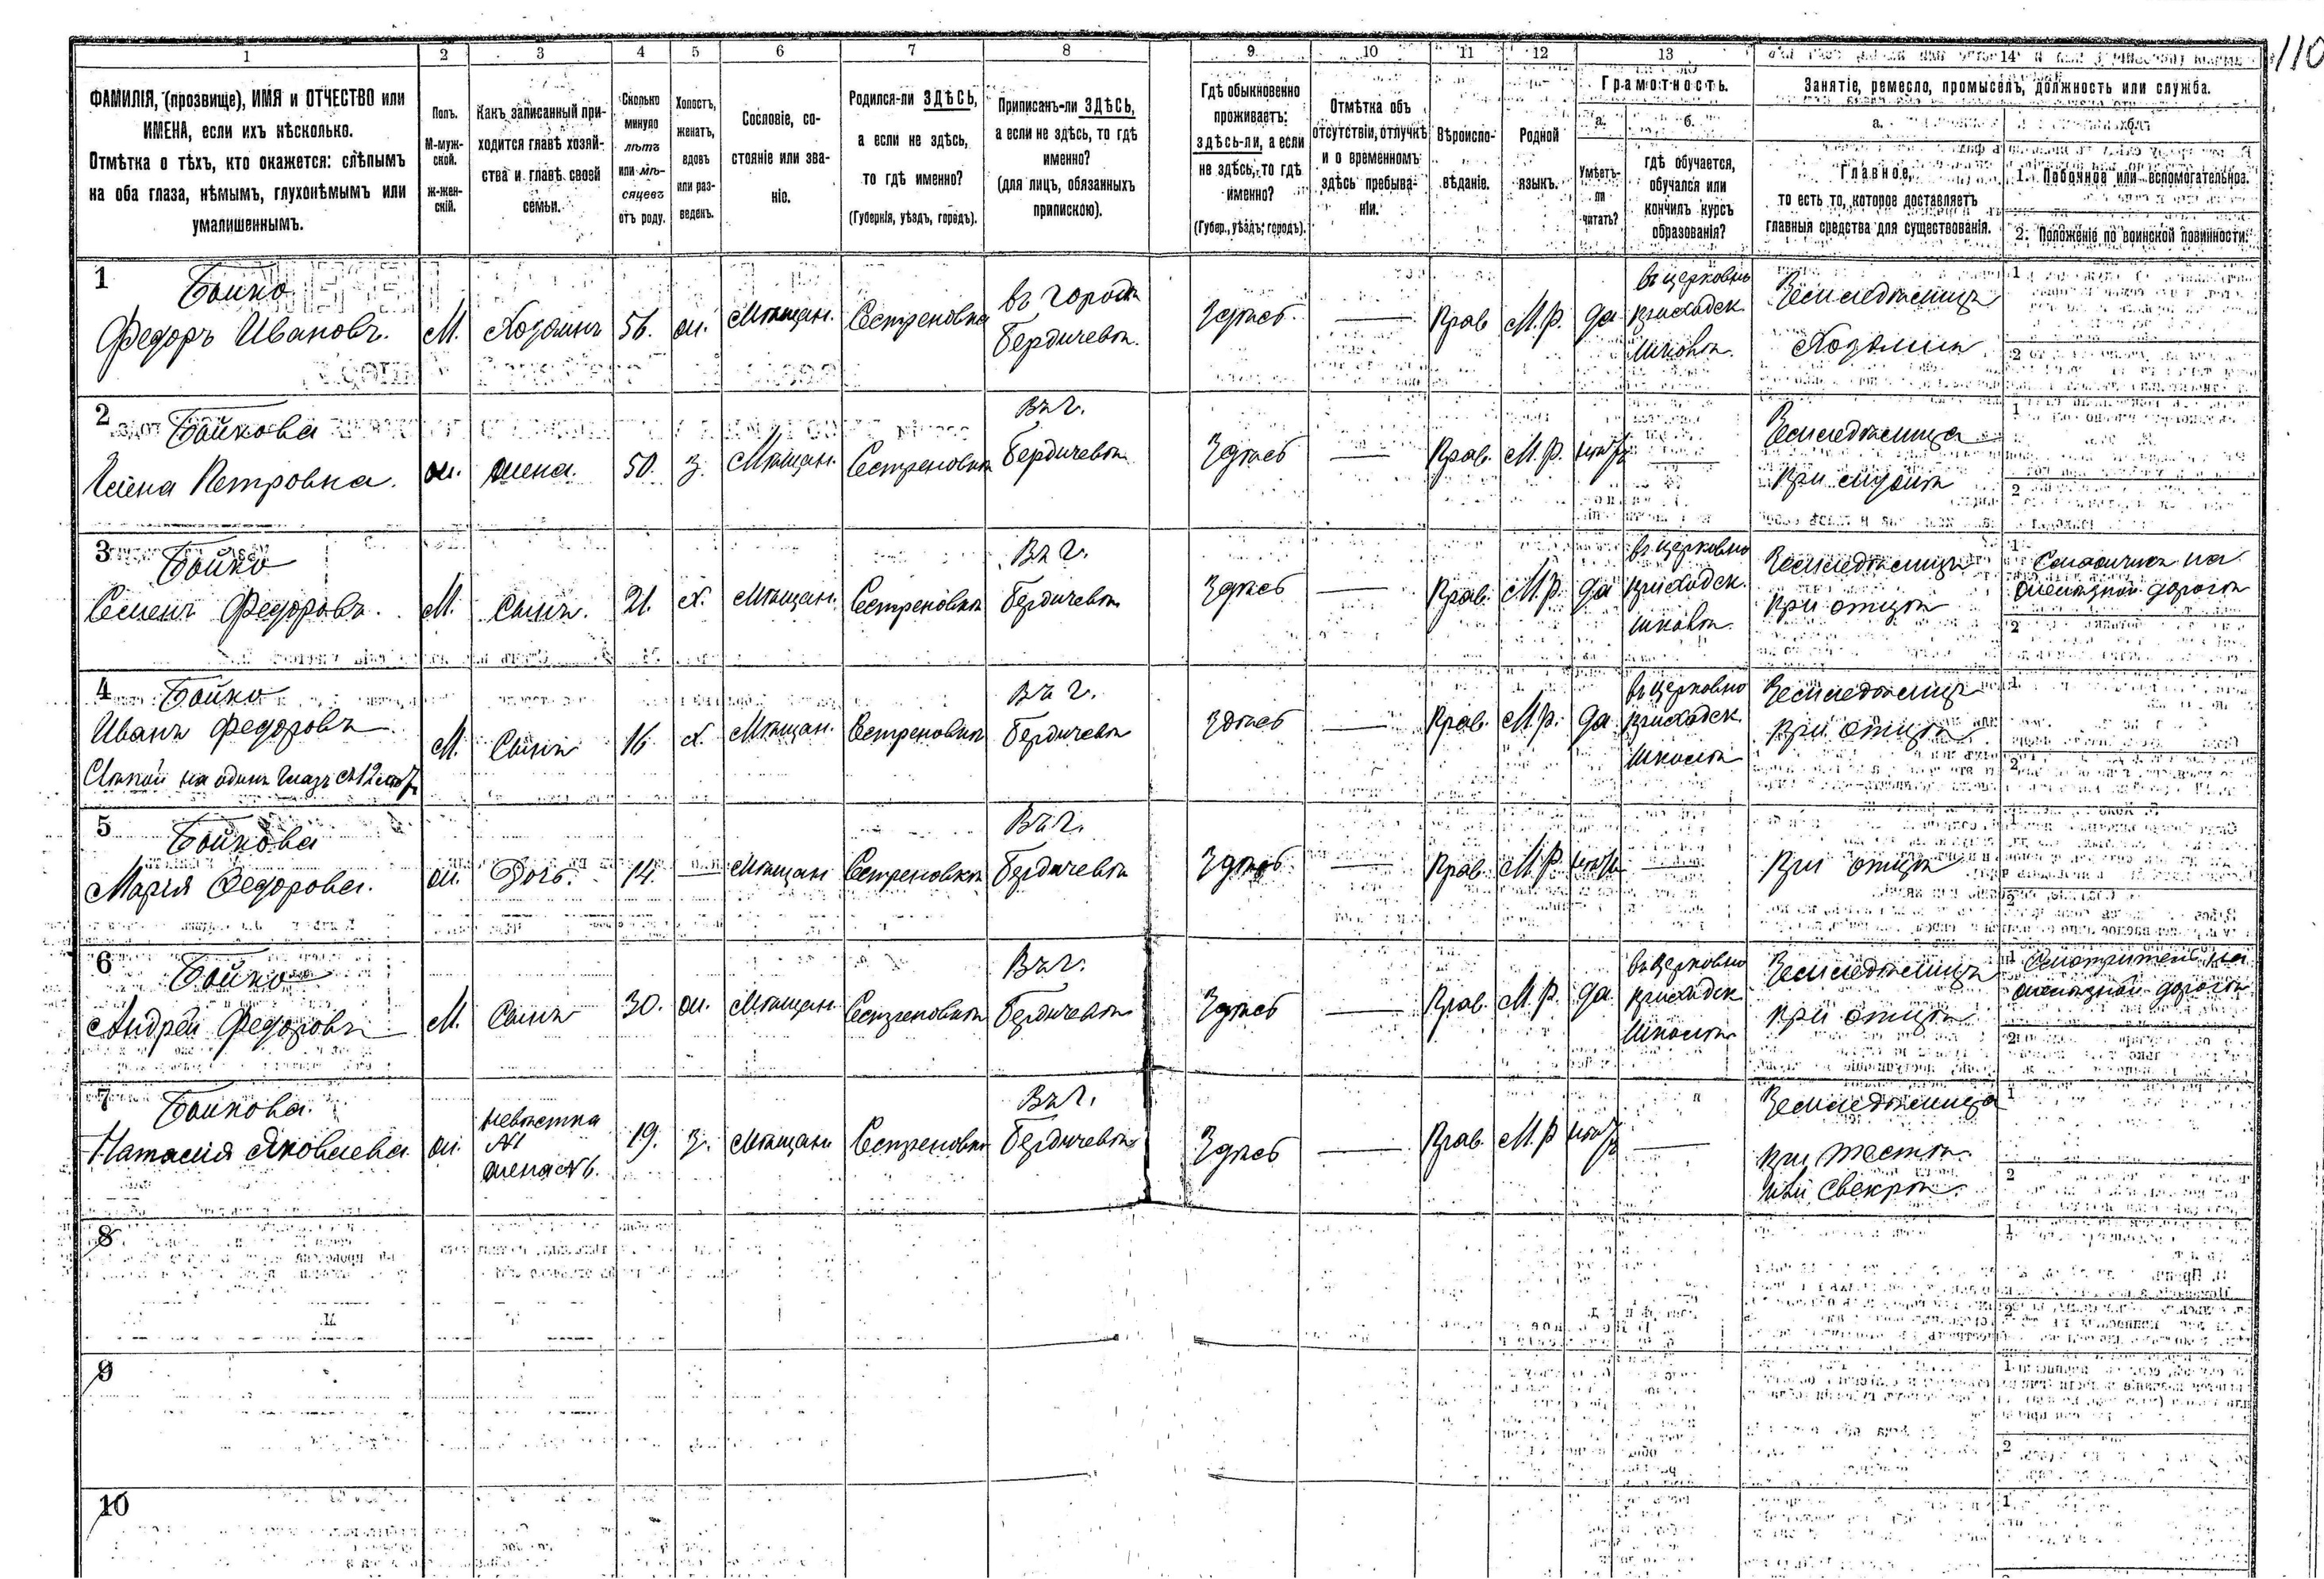 110
1 2 3 4 5 6 7 8 9 10 11 12 13 14
ФАМИЛІЯ, (прозвище), ИМЯ и ОТЧЕСТВО или
ИМЕНА, если ихъ нѣсколько.
Отмѣтка о тѣхъ, кто окажется: слѣпымъ
на оба глаза, нѣмымъ, глухонѣмымъ или
умалишеннымъ.
Полъ.
М-муж-
ской.
ж-жен-
скій.
Какъ записанный при-
ходится главѣ хозяй-
ства и главѣ своей
семьи.
Сколько
минуло
лѣтъ
или мѣ-
сяцевъ
отъ роду.
Холостъ,
женатъ,
вдовъ
или раз-
веденъ.
Сословіе, со-
стояніе или зва-
ніе.
Родился-ли ЗДѢСЬ,
а если не здѣсь,
то гдѣ именно?
(Губернія, уѣздъ, городъ).
Приписанъ-ли ЗДѢСЬ,
а если не здѣсь, то гдѣ
именно?
(для лицъ, обязанныхъ
припискою).
Гдѣ обыкновенно
проживаетъ:
здѣсь-ли, а если
не здѣсь, то гдѣ
именно?
(Губер., уѣздъ, городъ).
Отмѣтка объ
отсутствіи, отлучкѣ
и о временномъ
здѣсь пребыва-
ніи.
Вѣроиспо-
вѣданіе.
Родной
языкъ.
Грамотность.
а.
Умѣетъ-
ли
читать?
б.
гдѣ обучается,
обучался или
кончилъ курсъ
образованія?
Занятіе, ремесло, промыселъ, должность или служба.
а.
Главное,
то есть то, которое доставляетъ
главныя средства для существованія.
1. Побочное или вспомогательное.
2. Положеніе по воинской повинности.
1
Бойко
Федоръ Ивановъ.
М. Хозяинъ 56. ж. Мѣщан. Сестреновка
въ городѣ
Бердичевѣ.
Здѣсь. — Прав М.р. да
въ церковно
приходск.
школѣ.
Земледѣлецъ
Хозяинъ
1
2
2
Бойкова
Елена Петровна.
ж. жена. 50. з. Мѣщан. Сестреновка
Въ г.
Бердичевѣ
Здѣсь — Прав. М.р. нѣтъ —
Земледѣлица
при мужѣ
1
2
3
Бойко
Семенъ Федоровъ.
М. Сынъ. 21. х. Мѣщан. Сестреновкѣ
Въ г.
Бердичевѣ
Здѣсь — Прав. М.р. да
въ церковно
приходск.
школѣ.
Земледѣлецъ
при отцѣ
1
на
желѣзной дорогѣ
2
4
Бойко
Иванъ Федоровъ
Слѣпой на одинъ глазъ съ 12 лѣтъ
М. Сынъ 16 х. Мѣщан. Сестреновкѣ
Въ г.
Бердичевѣ
Здѣсь — Прав. М.р. да
въ церковно
приходск.
школѣ
Земледѣлецъ
при отцѣ
1
2
5
Бойкова
Марія Федорова.
ж. Дочь. 14. — Мѣщан Сестреновкѣ
Въ г.
Бердичевѣ
Здѣсь — Прав. М.р. нѣтъ —
При отцѣ
1
2
6
Бойко
Андрей Федоровъ
М. Сынъ 30. ж. Мѣщан. Сестреновкѣ
Въ г.
Бердичевѣ
Здѣсь — Прав. М.р. да
въ церковно
приходск
школѣ
Земледѣлецъ
при отцѣ
1
Смотритель на
желѣзной дорогѣ
2
7
Бойкова.
Наталія Яковлева
ж.
невѣстка
№1
жена №6.
19. з. Мѣщан Сестреновкѣ
Въ г.
Бердичевѣ
Здѣсь — Прав. М.р нѣтъ —
Земледѣлица
при тестѣ
или свекрѣ.
1
2
8
1
9
1
2
10
1